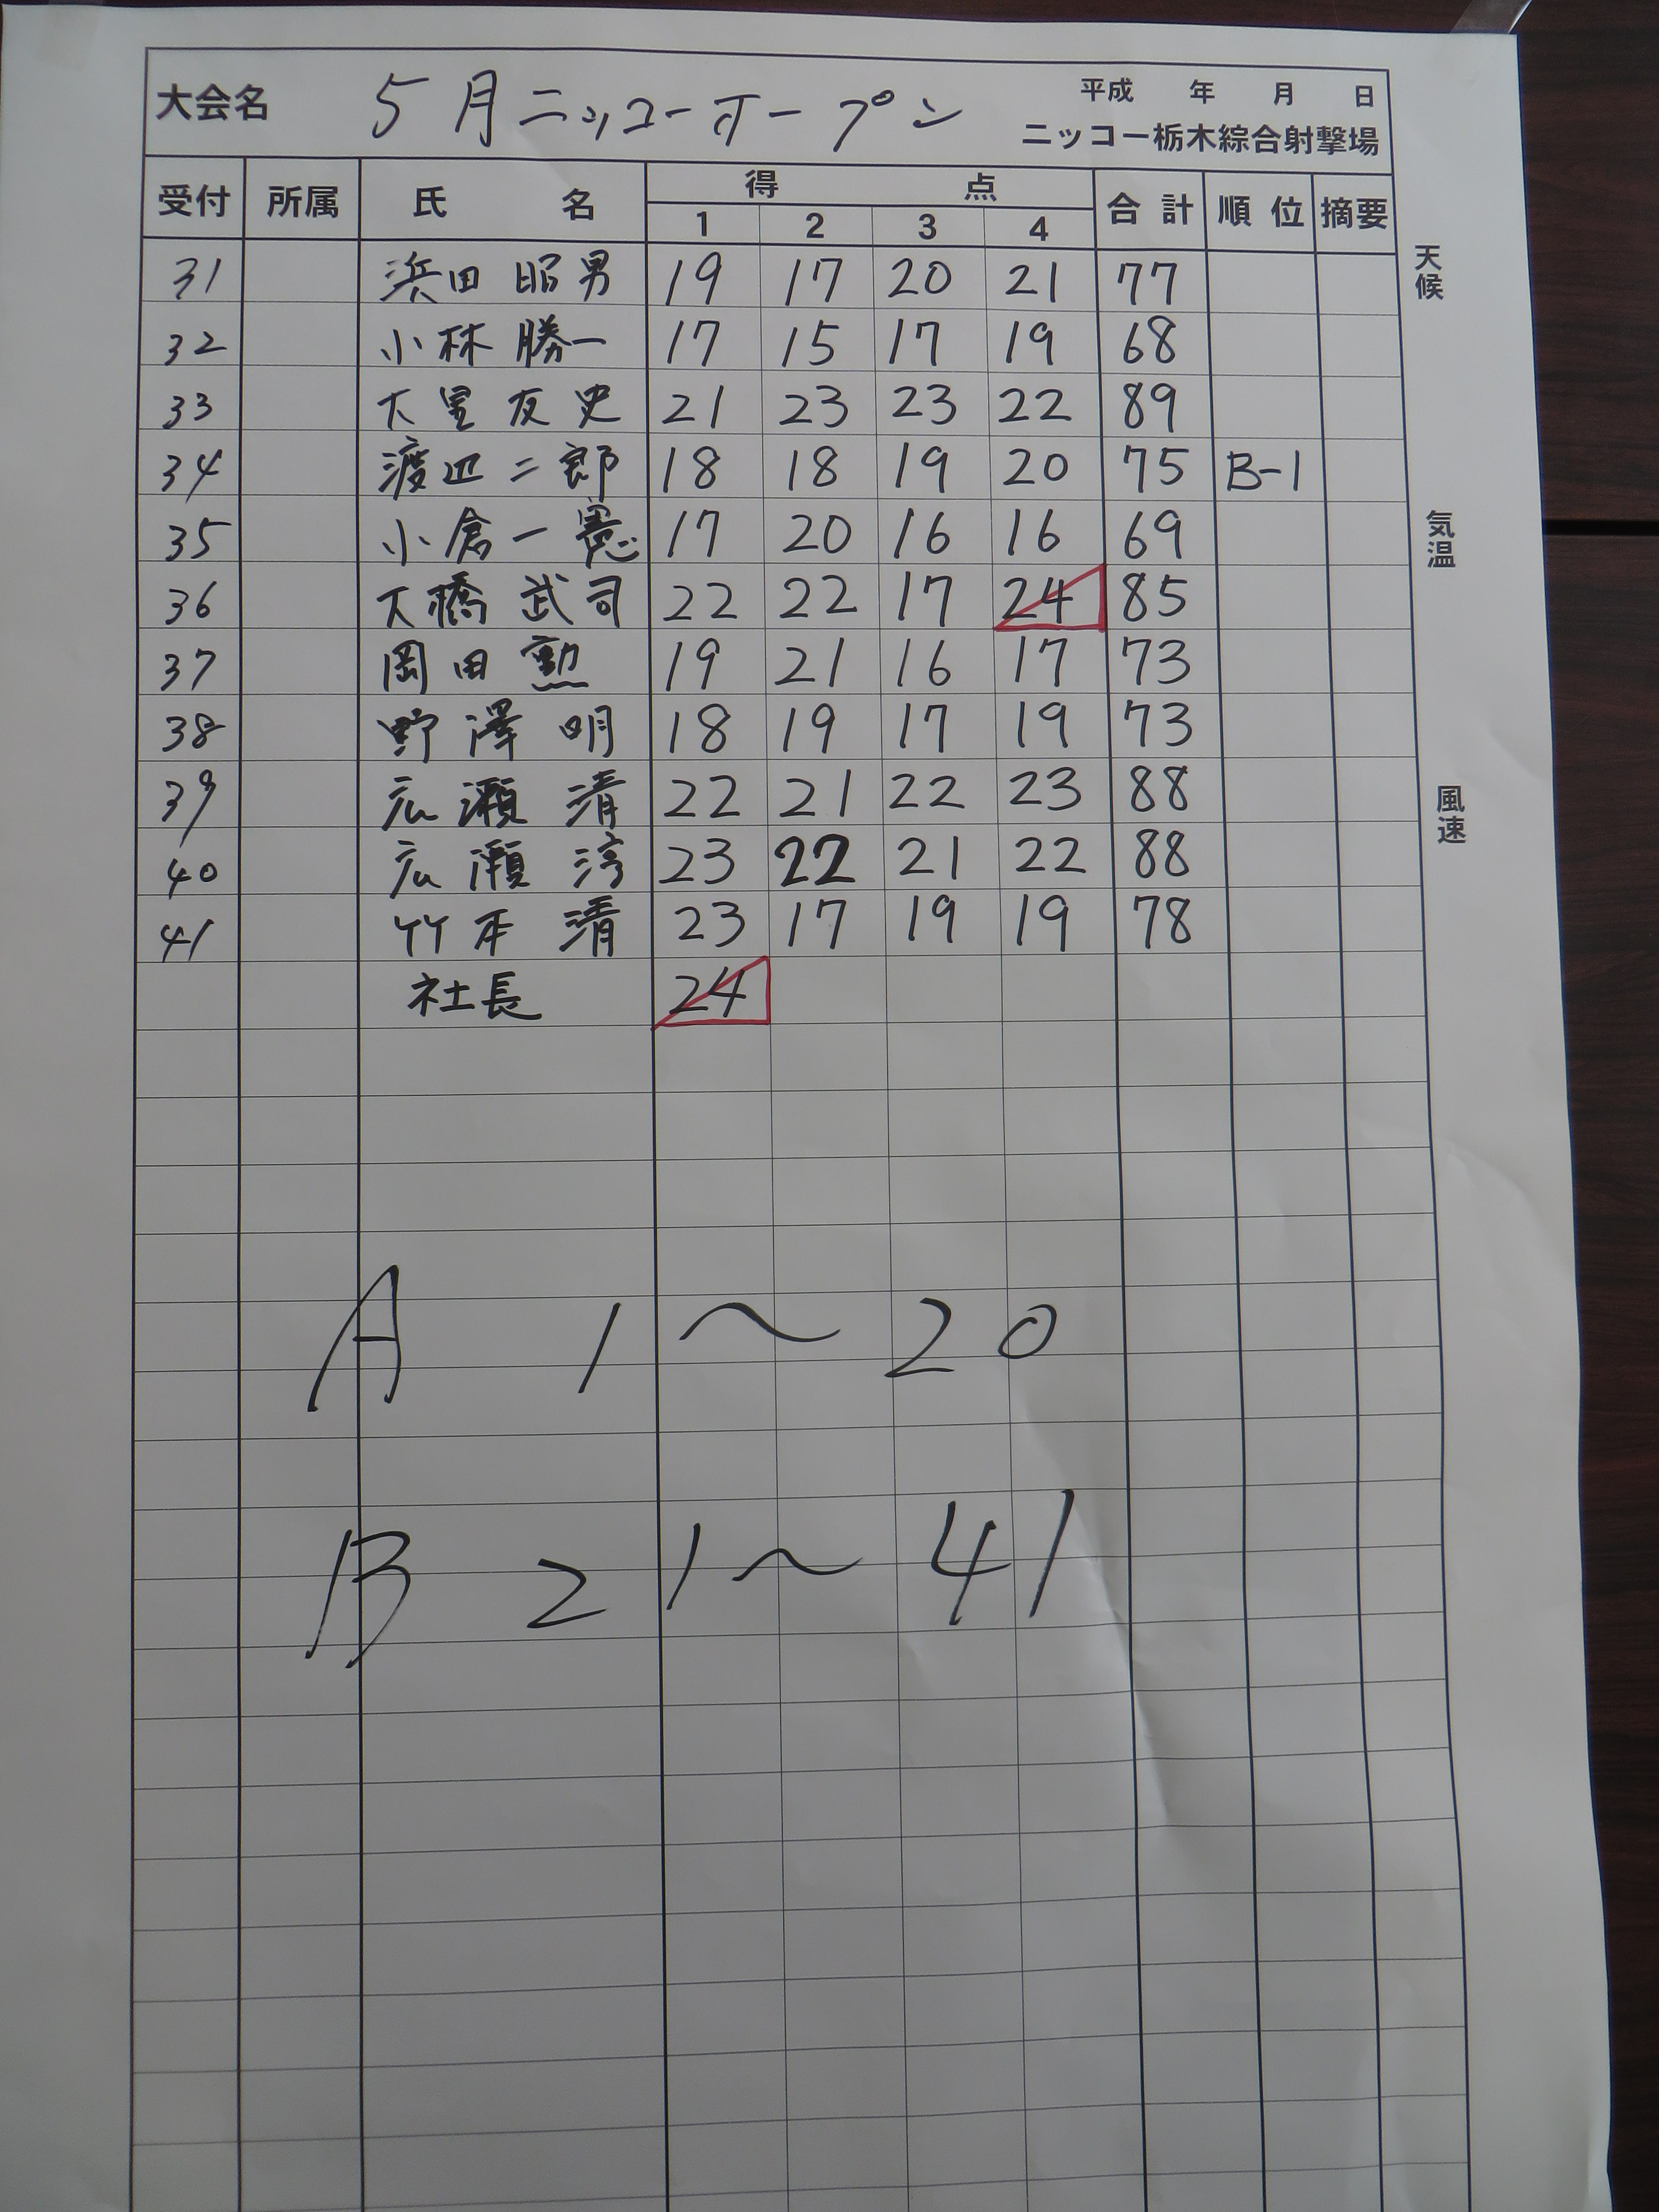 大会名 5月ニッコーオープン 平成 年 月 日
ニッコー栃木綜合射撃場
受付 所属 氏 名 得 点 合計 順位 摘要
1 2 3 4
31 浜田 昭男 19 17 20 21 77
32 小林 勝一 17 15 17 19 68
33 大里 友史 21 23 23 22 89
34 渡辺 二郎 18 18 19 20 75 B-1
35 小倉 一憲 17 20 16 16 69
36 大橋 武司 22 22 17 24 85
37 岡田 勲 19 21 16 17 73
38 野澤 明 18 19 17 19 73
39 広瀬 清 22 21 22 23 88
40 広瀬 淳 23 22 21 22 88
41 竹本 清 23 17 19 19 78
社長 24
A 1〜20
B 21〜41
天候
気温
風速